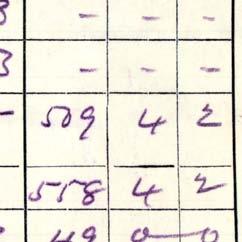 - - -
- - -
509 4 2
558 4 2
49 0 0